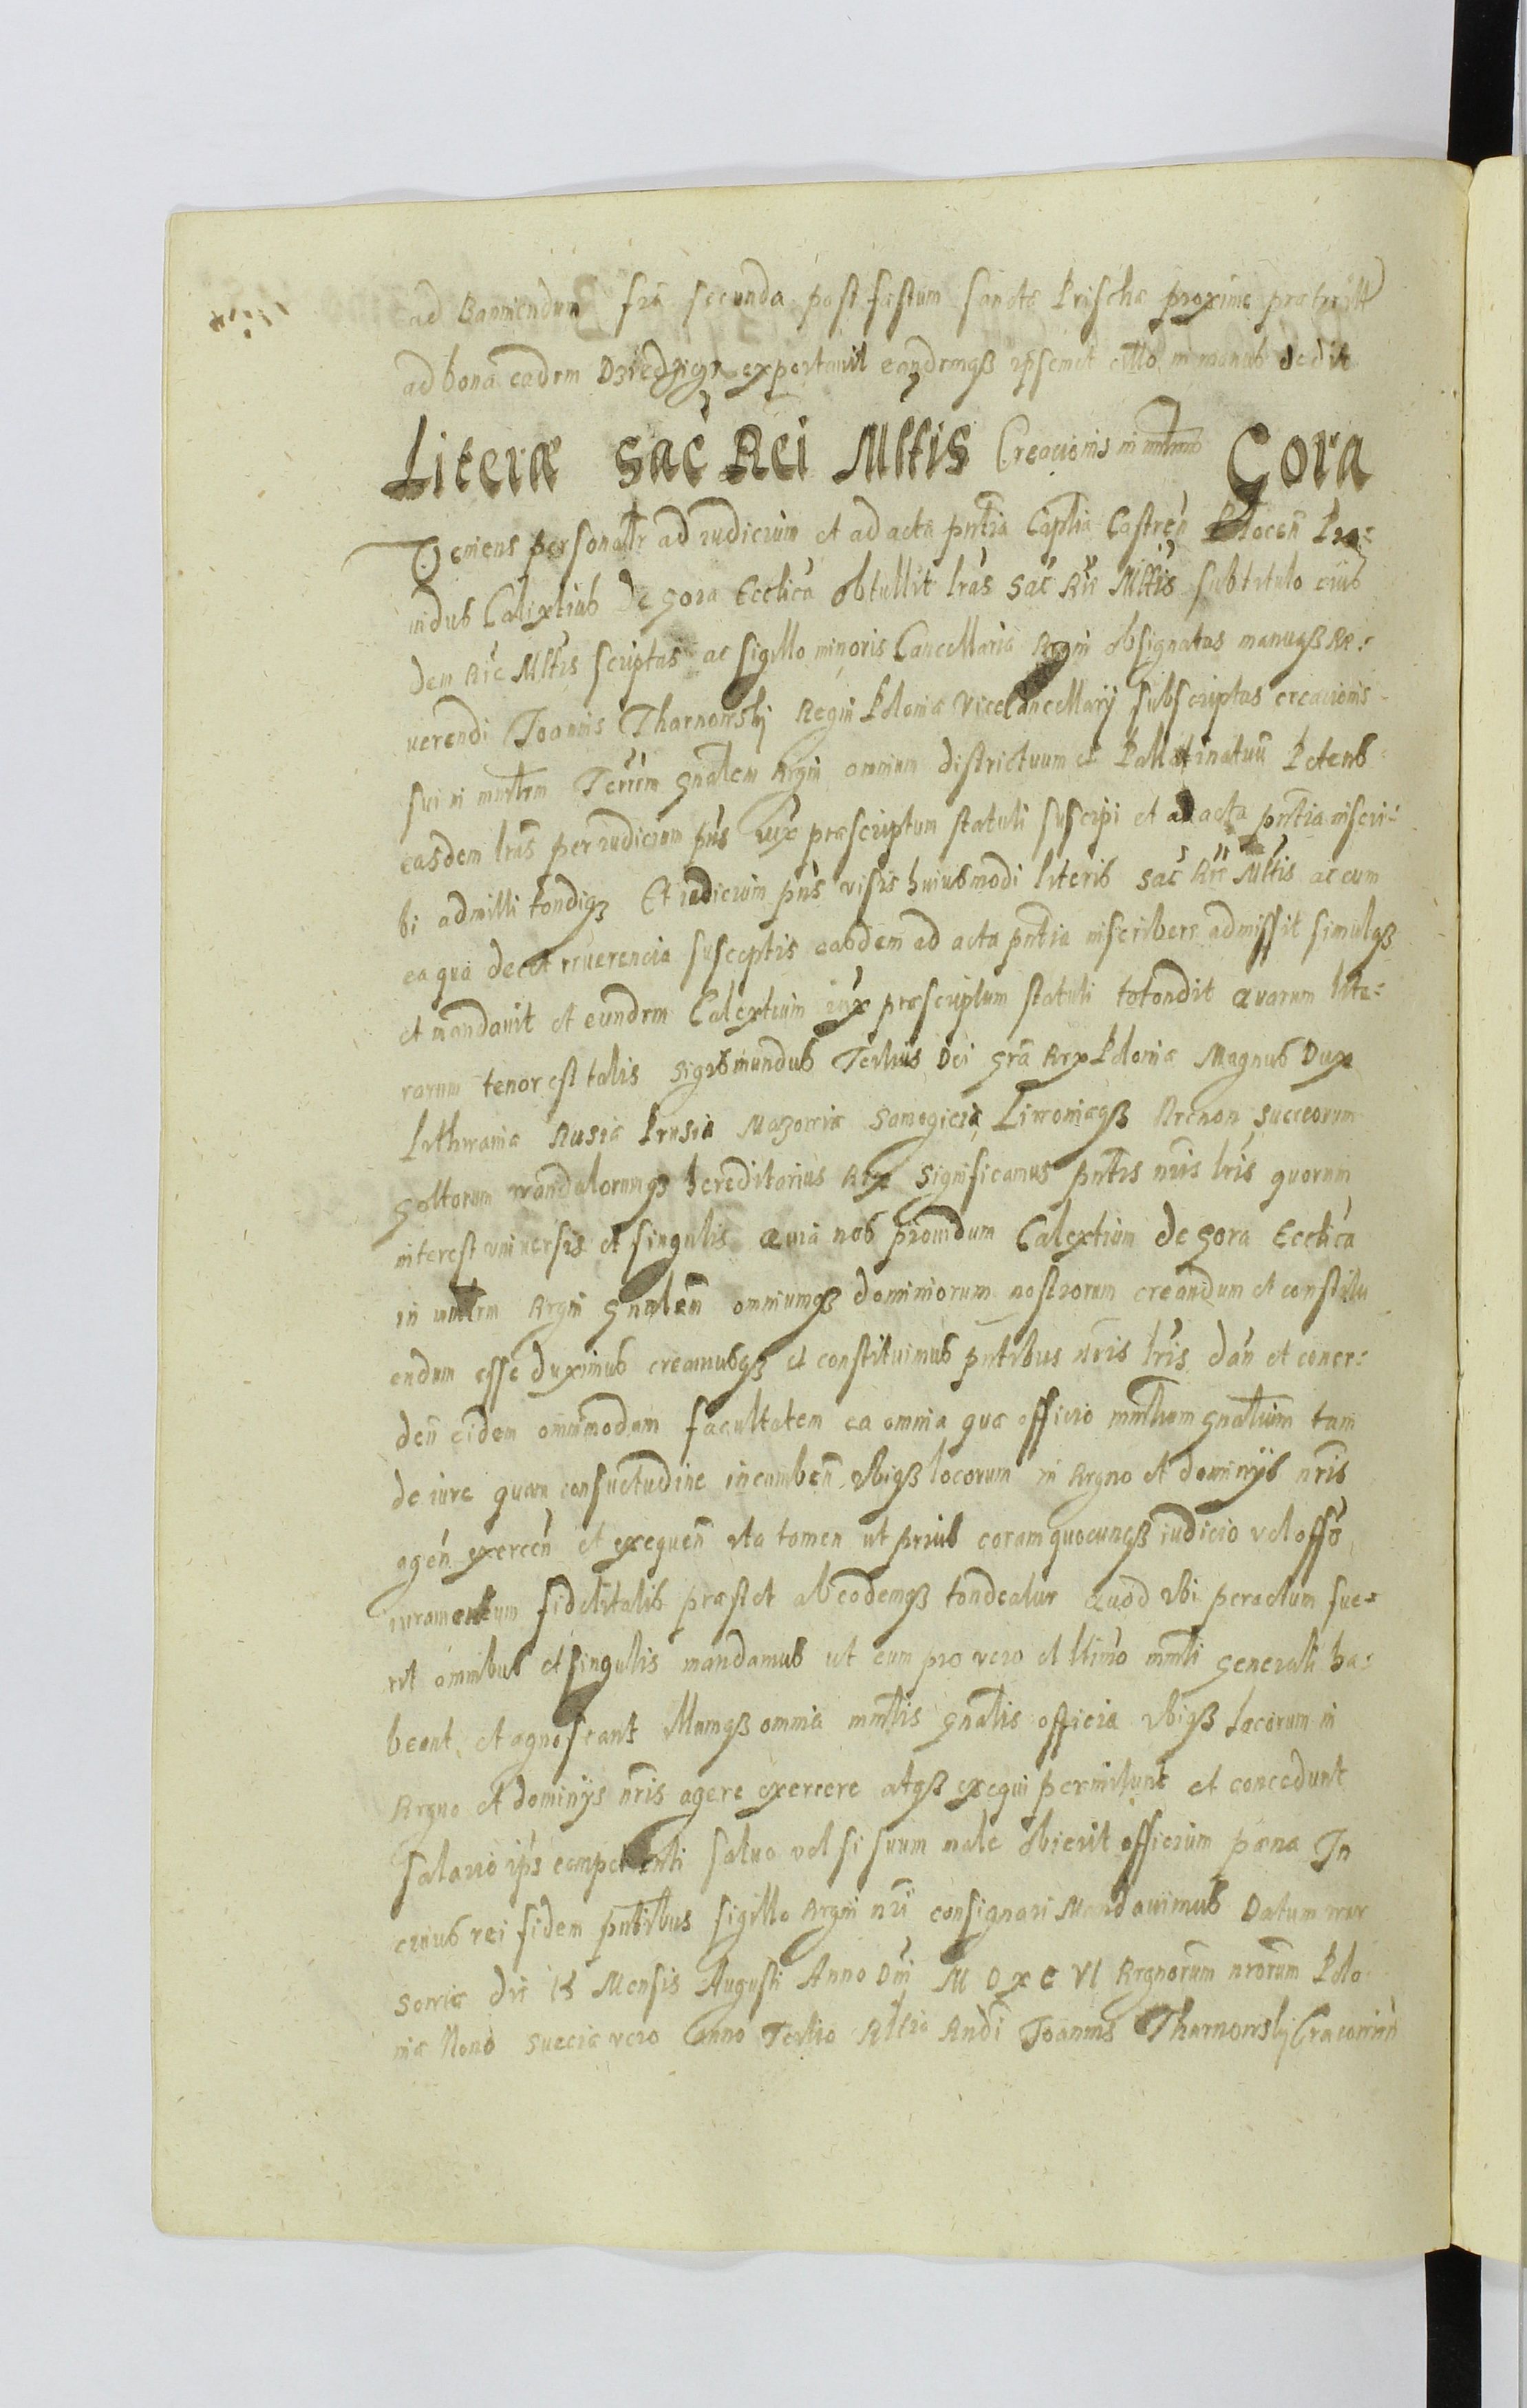 ad Banniendum fria secunda post festum sanctæ Prischæ proxime præterit
ad bona eadem expertavit eandemqz ipsemet illo in manus dedit
Literæ Sac Rei Mttis Creacionis in Gora
Veniens personalr ad iudicium et ad acta pntia Captia Castren Plocen Pro-
uidus Calixtius de Gora Ecclica obtullit lras Sac Rie Mttis sub titulo eius
dem Rie Mttis scriptas ac sigillo minoris Cancellariæ Regni obsignatas manuqz Re-
uerendi Joannis Tharnowskÿ Regni Poloniæ Vicecancellarÿ subscriptas creacionis
sui in mntrm Terrm gnalem Regni omnium districtuum et Pallatinatuu Petens
easdem lras per iudicium pns iux præscriptum statuti suscipi et ad acta pntia inscri-
bi admitti tondiqz Et iudicium pns visis huiusmodi literis Sac Rie Mttis ac cum
ea qua decet reuerencia susceptis easdem ad acta pntia inscribere admissit simulqz
et mandauit et eundem Calextium iux præscriptum statuti totondit Quarum lite-
rarum tenor est talis Sigismundus Tertius Dei gra Rex Poloniæ Magnus Dux
Lithwaniæ Rusiæ Prusiæ Mazowiæ Samogiciæ Liwoniæqz Necnon Suecorum
Gottorum wandalorumqz hereditarius Rex Significamus pntis nris lris quorum
interest vniuersis et singulis Quia nos prouidum Calextium de Gora Ecclica
in mntrm Regni gnalem omniumqz dominiorum nostrorum creandum et constitu
endum esse duximus creamusqz et constituimus pntibus nris lris dan et conce-
den eidem omnimodam facultatem ea omnia quæ officio mntlium gnalium tam
de iure quam consuetudine incumben vbiqz locorum in Regno et dominÿs nris
agen exercen et exequen ita tamen ut prius coram quocunqz iudicio vel offo
iuramentum fidelitatis præstet ab eodemqz tondeatur Quod vbi peractum fue-
rit omnibus et singulis mandamus ut eum pro vero et ltimo mntli generali ha-
beant et agnoscant Illumqz omnia mntlis gnalis officia vbiqz locorum in
Regno et dominÿs nris agere exercere atqz exequi permitunt et concedunt
salario ips competenti saluo vel si suum male obierit officium pœna In
cuius rei fidem pntibus sigillo Regni nri consignari Mandauimus Datum war
sowiæ die 15 Mensis Augusti Anno Dni M D X C VI Regnorum nrorum Polo
niæ Nono Sueciæ vero Anno Tertio Rltio Rndi Joannis Tharnowskÿ Cracowien